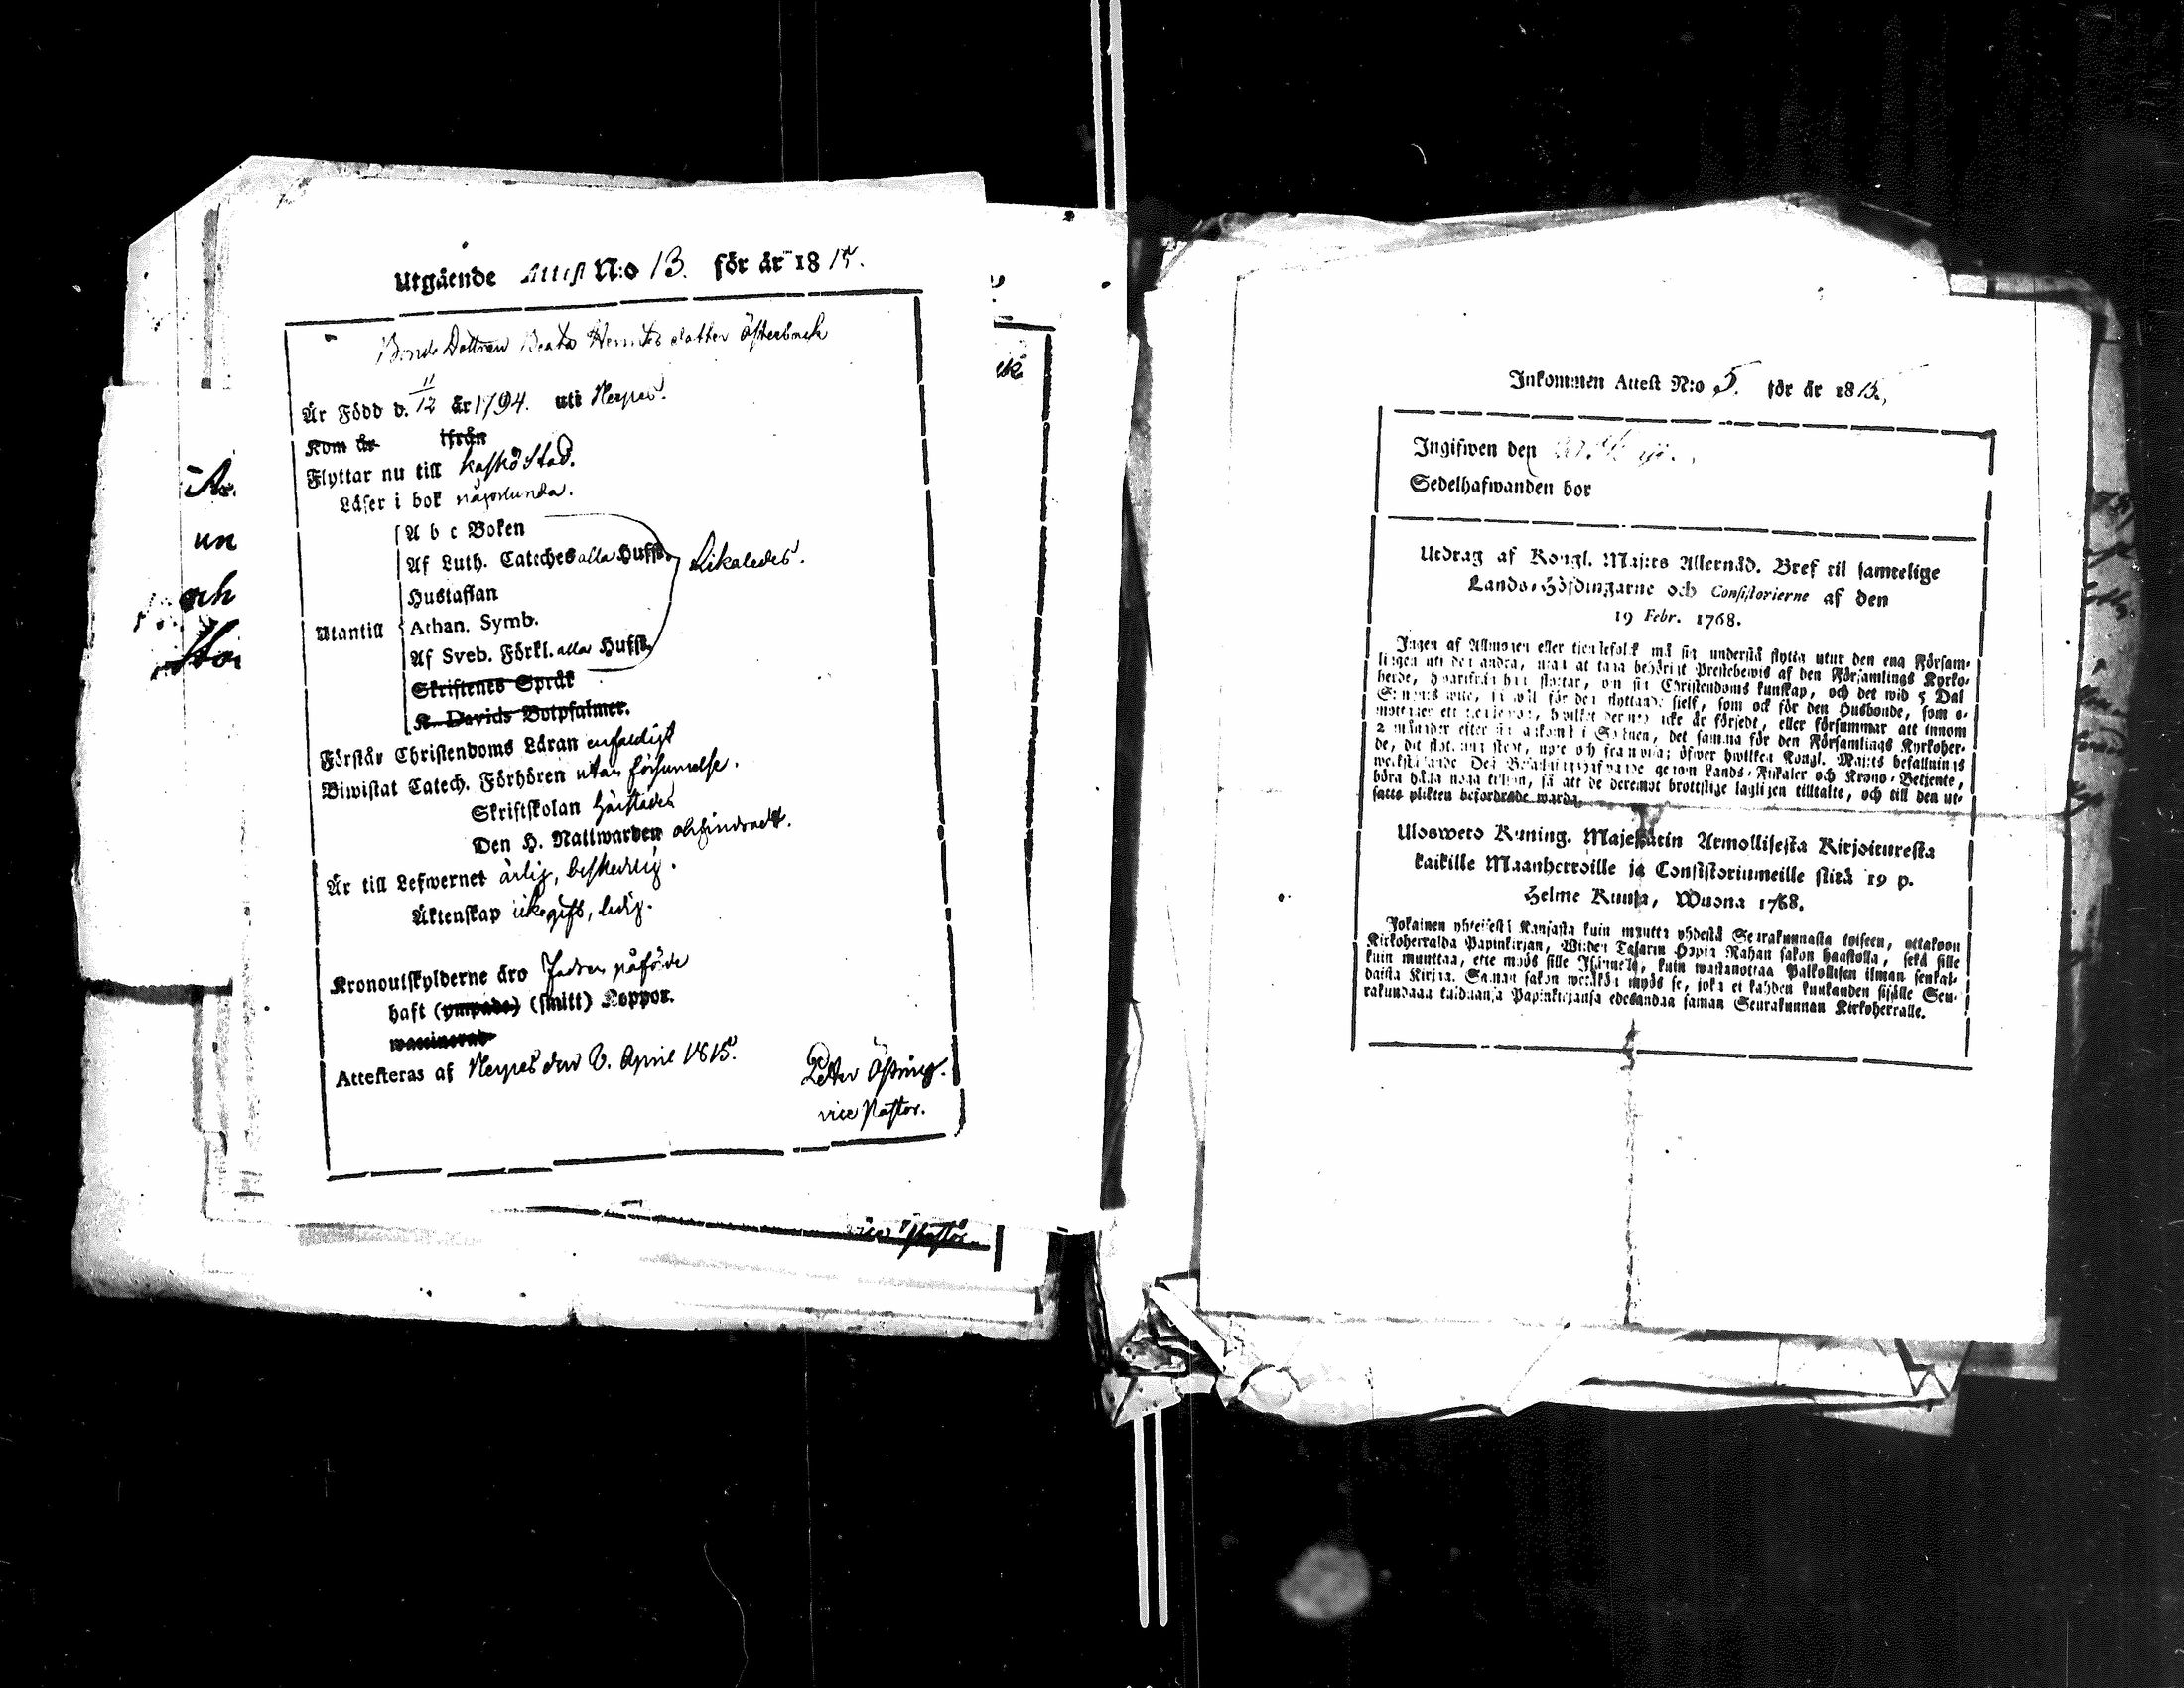 Utgående Attest N:o 13. för år 1815.
Bonde Dottren Beata Henricsdotter Österback
Är Född d. 11/12 år 1794. uti Nerpes.
Kom år ifrån
Flyttar nu till Caskö Stad.
Läser i bok någorlunda.
Utantill
A b c Boken
Af Luth. Catehes alla Hufst.
Likaledes.
Hustaflan
Athan. Symb.
Af Sveb. Förkl. alla Hufst.
Skriftenes Språk
K. Davids Botpsalmer.
Förstår Christendoms Läran enfaldigt
Biwistat Catech. Förhören utan försumelse.
Skriftskolan härstädes
Den H. Nattwarden ohindradt.
Är till Lefwernet ärlig, beskedlig.
Äktenskap icke gift, ledig.
Kronoutskylderne äro Fadren påförde
haft (ympade) (smitt) Koppor.
waccinerad
Attesteras af Nerpes den 6. April 1815.
Petter Östring.
vice Pastor.
vice Pastor.
un
och
Inkommen Attest N:o 5. för år 1815.
Ingifwen den
Sedelhafwanden bor
Utdrag af Kongl. Maj:ts Allernåd. Bref til samtelige
Lands-Höfdingarne och Consistorierne af den
19 Febr. 1768.
Ingen af Allmogen eller tjenstefolk må sig understå flytta utur den ena Försam-
lingen uti den andra, utan at taga behörigt Prestebewis af den Församlings Kyrko-
herde, hwarifrån han flyttar, om sin Christendoms kunskap, och det wid 5 Dal
Silf:mts wite, så wäl för den flyttande sielf, som ock för den Husbonde, som e-
mottager ett tjenstehjon, hwilket dermed icke är försedt, eller försummar att innom
2 månader efter sin ankomst i Socknen, det samma för den Församlings Kyrkoher-
de, dit flyttning skedt, upte och framwisa; öfwer hwilken Kongl. Maj:ts befallnings
werkställande Des Befallningshafwande genom Lands-Fiskaler och Krono-Betjente,
böra hålla noga tilsyn, så att de deremot brottslige lagligen tilltalte, och till den ut-
satte plikten befordrade warda.
Ulosweto Kuning. Majestätin Armollisesta Kirjoituresta
kaikille Maanherroille ja Consistoriumeille siitä 19 p.
Helme Kuusa, Wuona 1768.
Jokainen yhteisestä Kansasta kuin muutta yhdestä Seurakunnasta toiseen, ottakoon
Kirkoherralda Papinkirjan, Wiiden Talarin Hopia Rahan sakon haastolla, sekä sille
kuin muuttaa, ette myös sille Isännelle, kuin wastanottaa Palkollisen ilman senkal-
daista Kirjaa. Saman sakon wetäkön myös se, joka ei kahden kuukauden sisälle Seu-
rakundaan tulduansa Papinkirjansa edesandaa saman Seurakunnan Kirkoherralle.